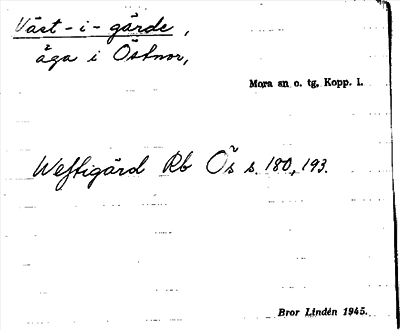 Väst-i-gärde,
äga i Östnor,
Mora sn o. tg, Kopp. l.
Weftigärd Rb Ös s. 180, 193.
Bror Lindén 1945.